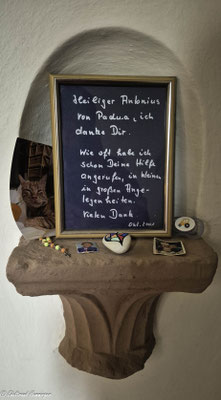 Heiliger Antonius
von Padua, ich
danke Dir.
Wie oft habe ich
schon Deine Hilfe
angerufen, in kleinen
in großen Ange-
legenheiten.
Vielen Dank.